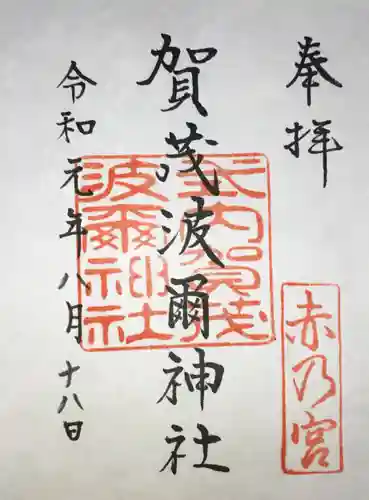 奉拝
赤乃宮
賀茂波爾神社
式内賀茂
波爾神社
令和元年八月十八日